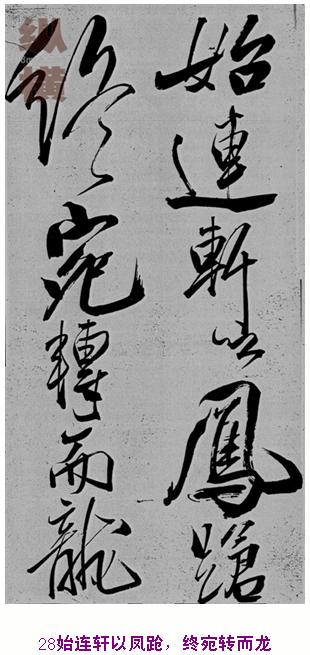 始連軒以鳳蹌
終宛轉而龍
纵横
28始连轩以凤跄，终宛转而龙